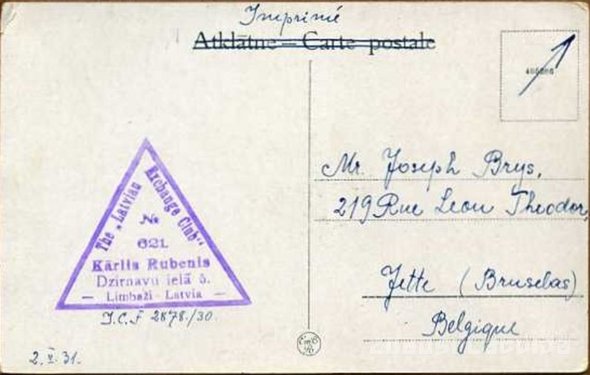 Imprimé
Atklātne — Carte postale
The „Latvian Exchange Club"
№
621.
Kārlis Rubenis
Dzirnavu ielā 5.
— Limbaži - Latvia —
I.C.F 2878./30.
2.X.31.
Mr. Joseph Brys,
219 Rue Leon Theodor,
Jette (Bruselas)
Belgique